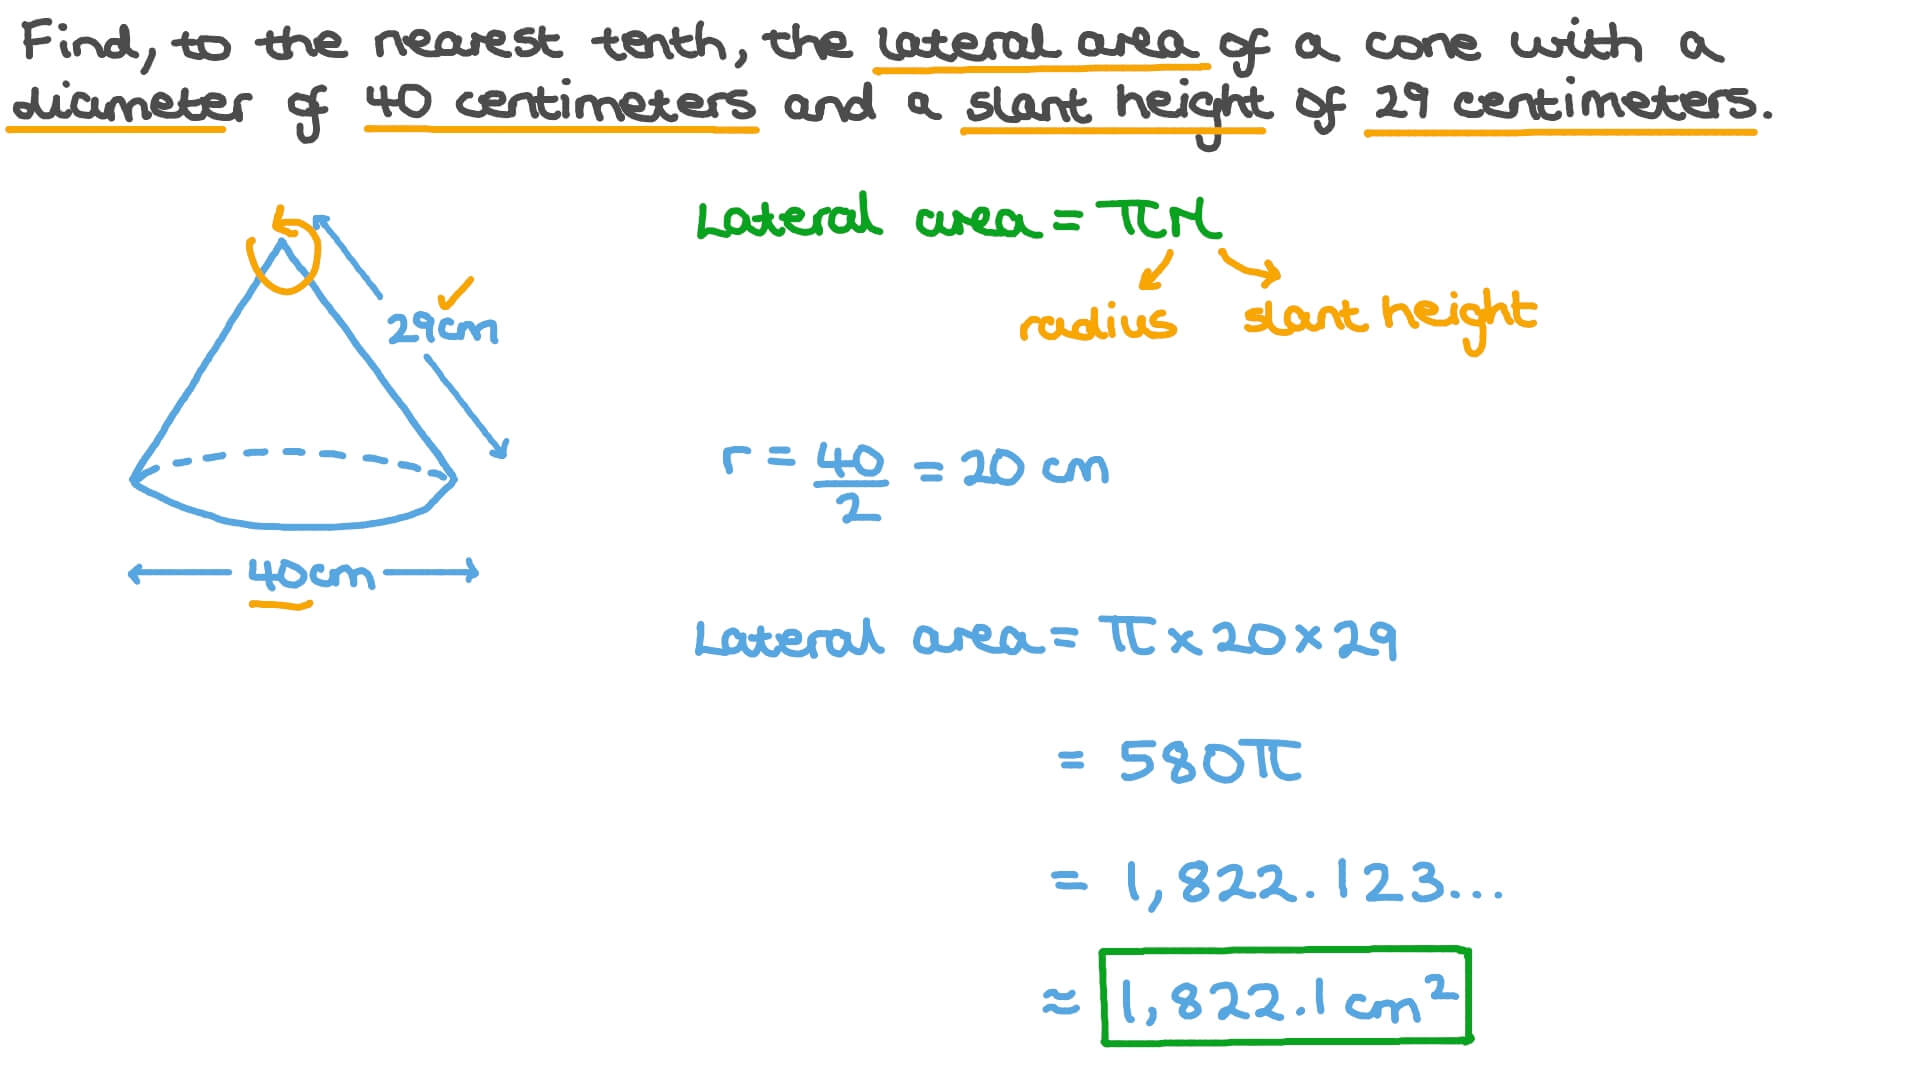 Find, to the nearest tenth, the lateral area of a cone with a
diameter of 40 centimeters and a slant height of 29 centimeters.
Lateral area = πrl
radius slant height
29cm
r = 40/2 = 20 cm
40cm
Lateral area = π × 20 × 29
= 580π
= 1,822.123...
≈ 1,822.1 cm²